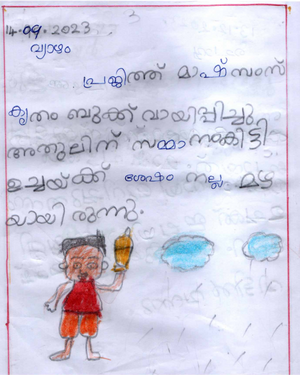 14.09.2023
വ്യാഴം
പ്രജിത്ത് മാഷ് സംസ്
കൃതം ബുക്ക് വായിപ്പിച്ചു
അതുലിന് സമ്മാനംകിട്ടി
ഉച്ചയ്ക്ക് ശേഷം നല്ല മഴ
യായി രുന്നു.